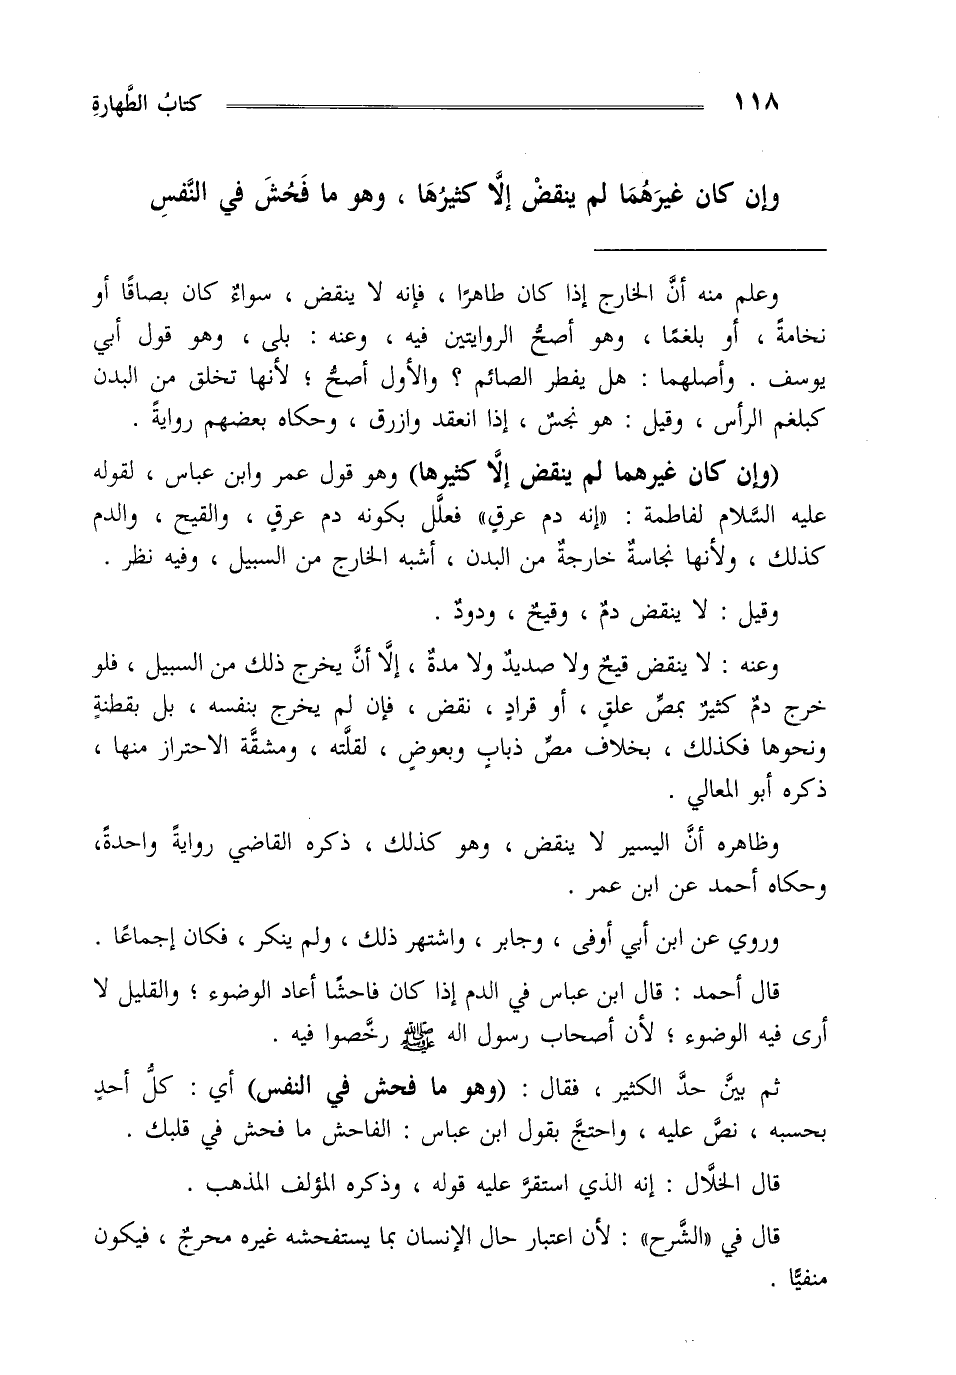 ١١٨ كتابُ الطَّهارةِ
وإن كان غيرَهُمَا لم ينقضْ إلَّا كثيرُهَا ، وهو ما فَحُشَ في النَّفسِ
وعلم منه أنَّ الخارج إذا كان طاهرًا ، فإنه لا ينقض ، سواءٌ كان بصاقًا أو
نخامةً ، أو بلغمًا ، وهو أصحُّ الروايتين فيه ، وعنه : بلى ، وهو قول أبي
يوسف . وأصلهما : هل يفطر الصائم ؟ والأول أصحُّ ؛ لأنها تخلق من البدن
كبلغم الرأس ، وقيل : هو نجسٌ ، إذا انعقد وازرق ، وحكاه بعضهم روايةً .
(وإن كان غيرهما لم ينقض إلَّا كثيرها) وهو قول عمر وابن عباس ، لقوله
عليه السَّلام لفاطمة : «إنه دم عرقٍ» فعلَّل بكونه دم عرقٍ ، والقيح ، والدم
كذلك ، ولأنها نجاسةٌ خارجةٌ من البدن ، أشبه الخارج من السبيل ، وفيه نظر .
وقيل : لا ينقض دمٌ ، وقيحٌ ، ودودٌ .
وعنه : لا ينقض قيحٌ ولا صديدٌ ولا مدةٌ ، إلَّا أنَّ يخرج ذلك من السبيل ، فلو
خرج دمٌ كثيرٌ بمصِّ علقٍ ، أو قرادٍ ، نقض ، فإن لم يخرج بنفسه ، بل بقطنةٍ
ونحوها فكذلك ، بخلاف مصِّ ذبابٍ وبعوضٍ ، لقلَّته ، ومشقَّة الاحتراز منها ،
ذكره أبو المعالي .
وظاهره أنَّ اليسير لا ينقض ، وهو كذلك ، ذكره القاضي روايةً واحدةً،
وحكاه أحمد عن ابن عمر .
وروي عن ابن أبي أوفى ، وجابر ، واشتهر ذلك ، ولم ينكر ، فكان إجماعًا .
قال أحمد : قال ابن عباس في الدم إذا كان فاحشًا أعاد الوضوء ؛ والقليل لا
أرى فيه الوضوء ؛ لأن أصحاب رسول اله ﷺ رخَّصوا فيه .
ثم بينَّ حدَّ الكثير ، فقال : (وهو ما فحش في النفس) أي : كلُّ أحدٍ
بحسبه ، نصَّ عليه ، واحتجَّ بقول ابن عباس : الفاحش ما فحش في قلبك .
قال الخلَّال : إنه الذي استقرَّ عليه قوله ، وذكره المؤلف المذهب .
قال في «الشَّرح» : لأن اعتبار حال الإنسان بما يستفحشه غيره محرجٌ ، فيكون
منفيًّا .